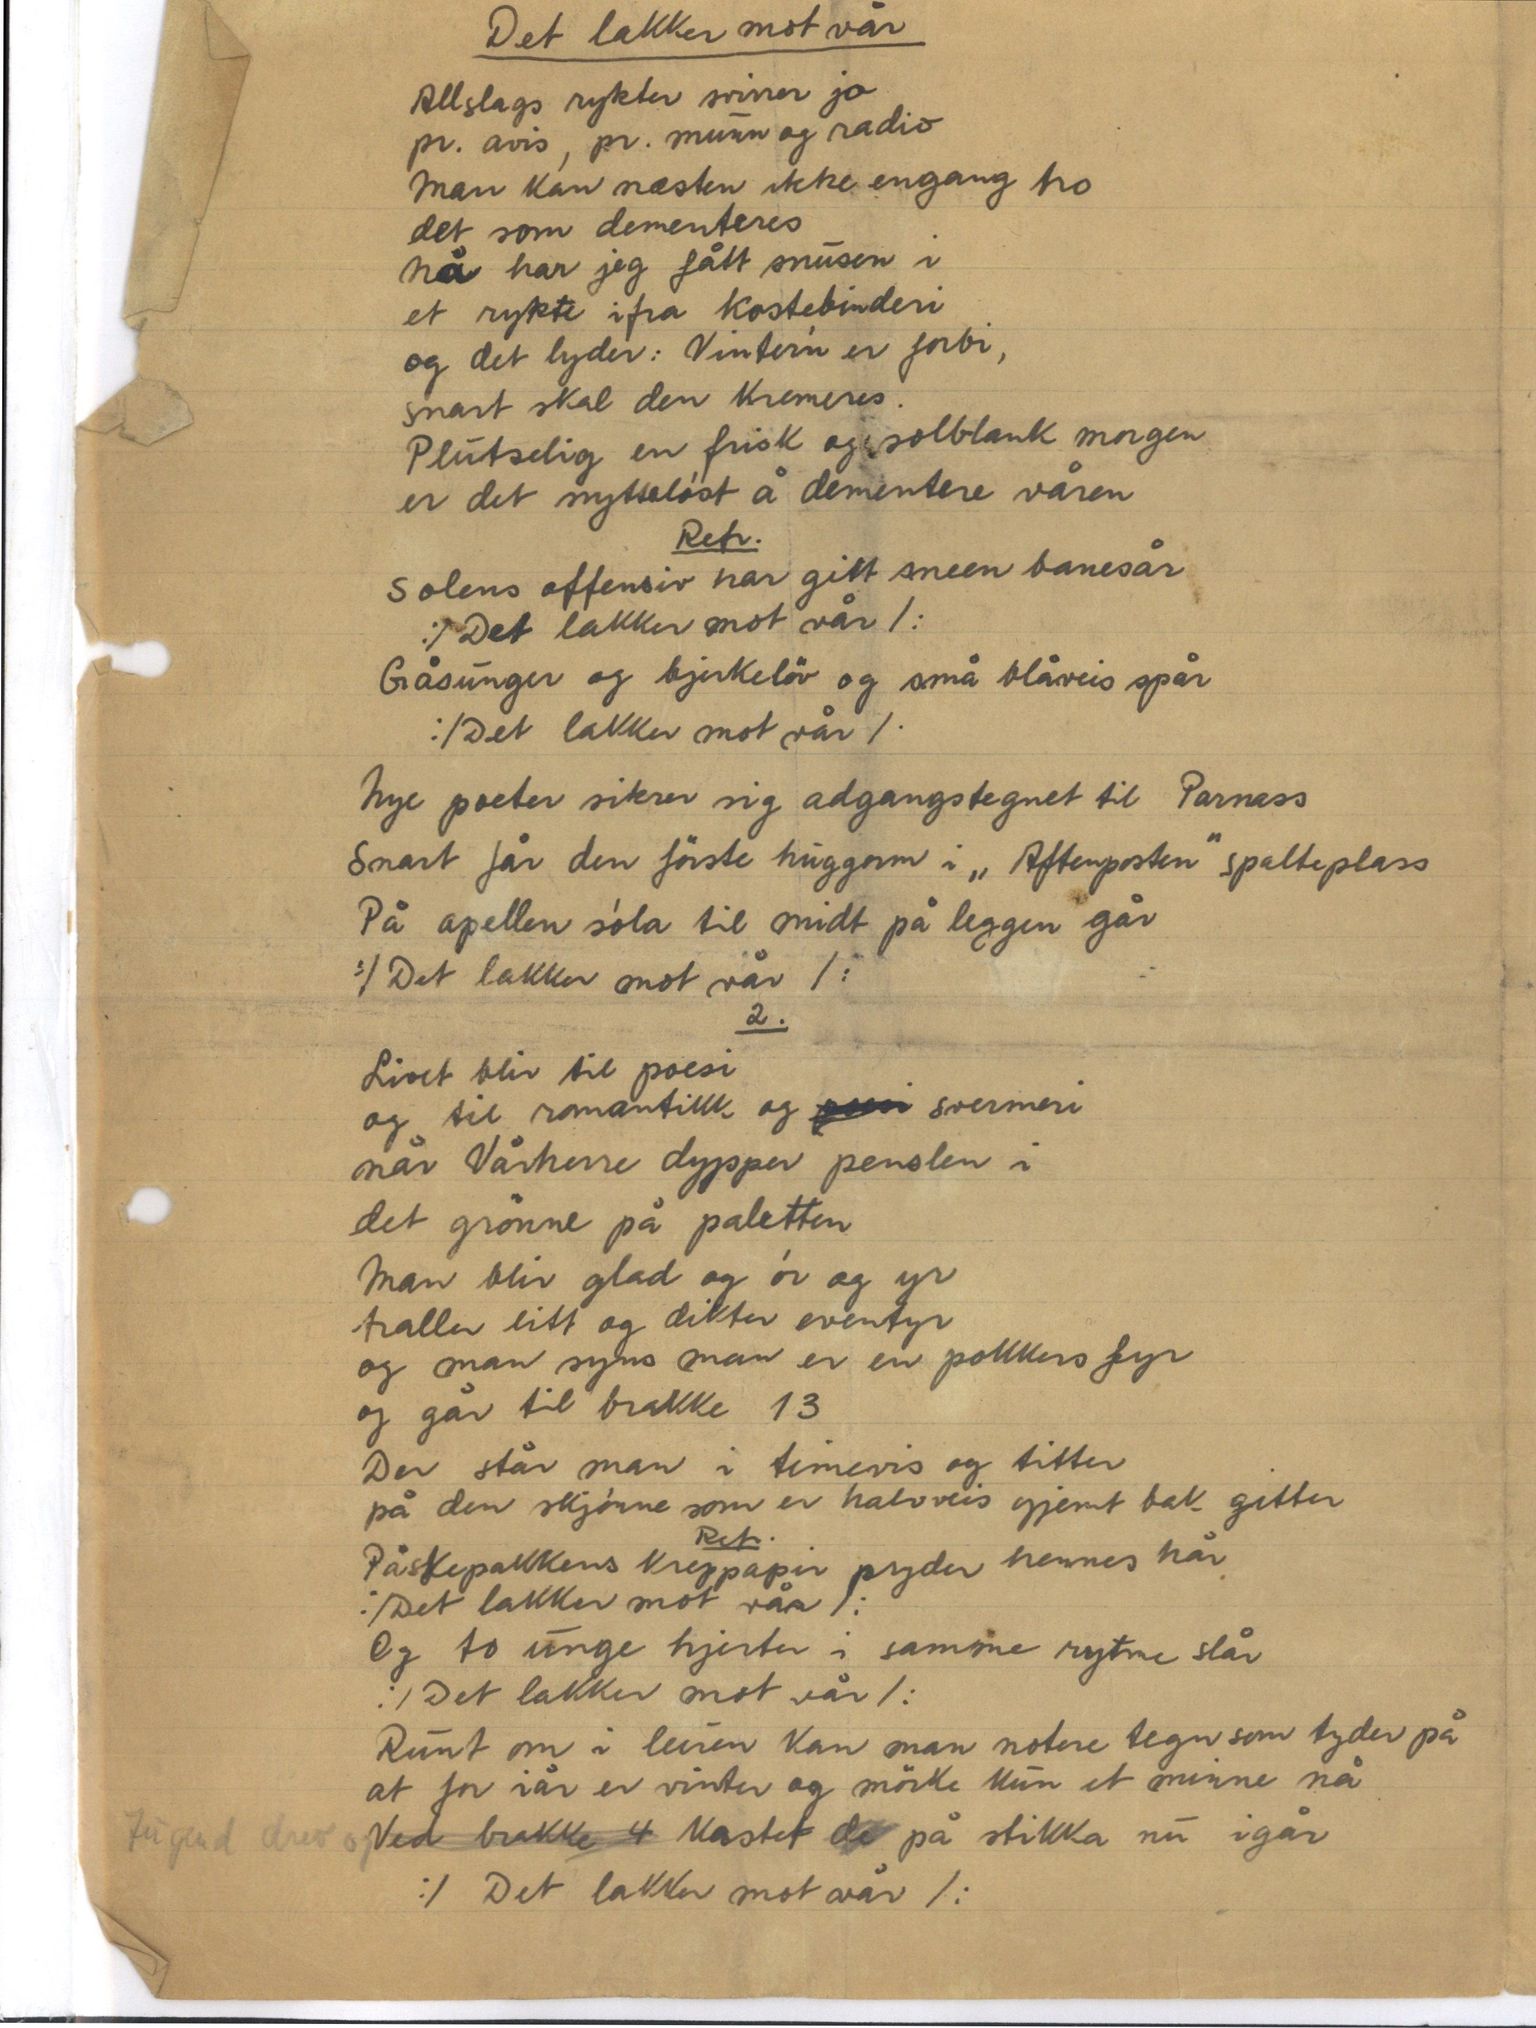 Det lakker mot vår
Allslags rykter svirrer jo
pr. avis, pr. munn og radio
Man kan næsten ikke engang tro
det som dementeres
Nå har jeg fått snusen i
et rykte ifra Kostebinderi
og det lyder: Vinter'n er forbi,
snart skal den kremeres.
Plutselig en frisk og solblank morgen
er det nytteløst å dementere våren
Refr.
Solens offensiv har gitt sneen banesår
:/ Det lakker mot vår /:
Gåsunger og bjerkeløv og små blåveis spår
:/ Det lakker mot vår /.
Nye poeter sikrer sig adgangstegnet til Parnass
Snart får den första huggorm i „Aftenposten" spalteplass
På apellen sóla til midt på leggen går
:/ Det lakker mot vår /:
2.
Livet blir til poesi
og til romantikk og poesi svermeri
når Vårherre dypper penslen i
det grönne på paletten
Man blir glad og ór og yr
traller litt og dikter eventyr
og man syns man er en pokkers fyr
og går til brakke 13
Der står man i timevis og titter
på den skjónne som er halvveis gjemt bak gitter
Refr.
Påskepakkens kreppapir pryder hennes hår
:/ Det lakker mot vår /:
Og to unge hjerter i samme rytme slår
:/ Det lakker mot vår /:
Runt om i leiren kan man notere tegn som tyder på
at for iår er vinter og mörke kun et minne nå
Jugend drev og Ved brakke 4 kastet de på stikka nu igår
:/ Det lakker mot vår /: